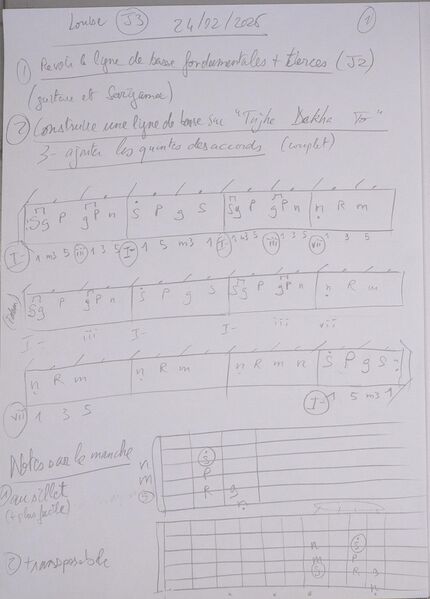 Louise J3 24/02/2025 1
1 Revoir la ligne de basse fondamentales + tierces (J2)
(guitare et Sarigama)
2 Construire une ligne de basse sur "Tujhe Dekha To"
3- ajouter les quintes des accords (couplet)
Sg P gP n Ṡ P g S Sg P gP n ṇ R m
I- 1 m3 5 iii 1 3 5 I- 1 5 m3 1 I- 1 m3 5 iii 1 3 5 vii 1 3 5
Sg P gP n Ṡ P g S Sg P gP n ṇ R m
I- iii I- I- iii vii
ṇ R m ṇ R m ṇ R m n Ṡ P g S
vii 1 3 5 I- 1 5 m3 1
Notes sur le manche
1 au sillet
(+ plus facile)
n Ṡ
m P
S R g
ṇ
2 transposable
n Ṡ
m P
S R g
ṇ